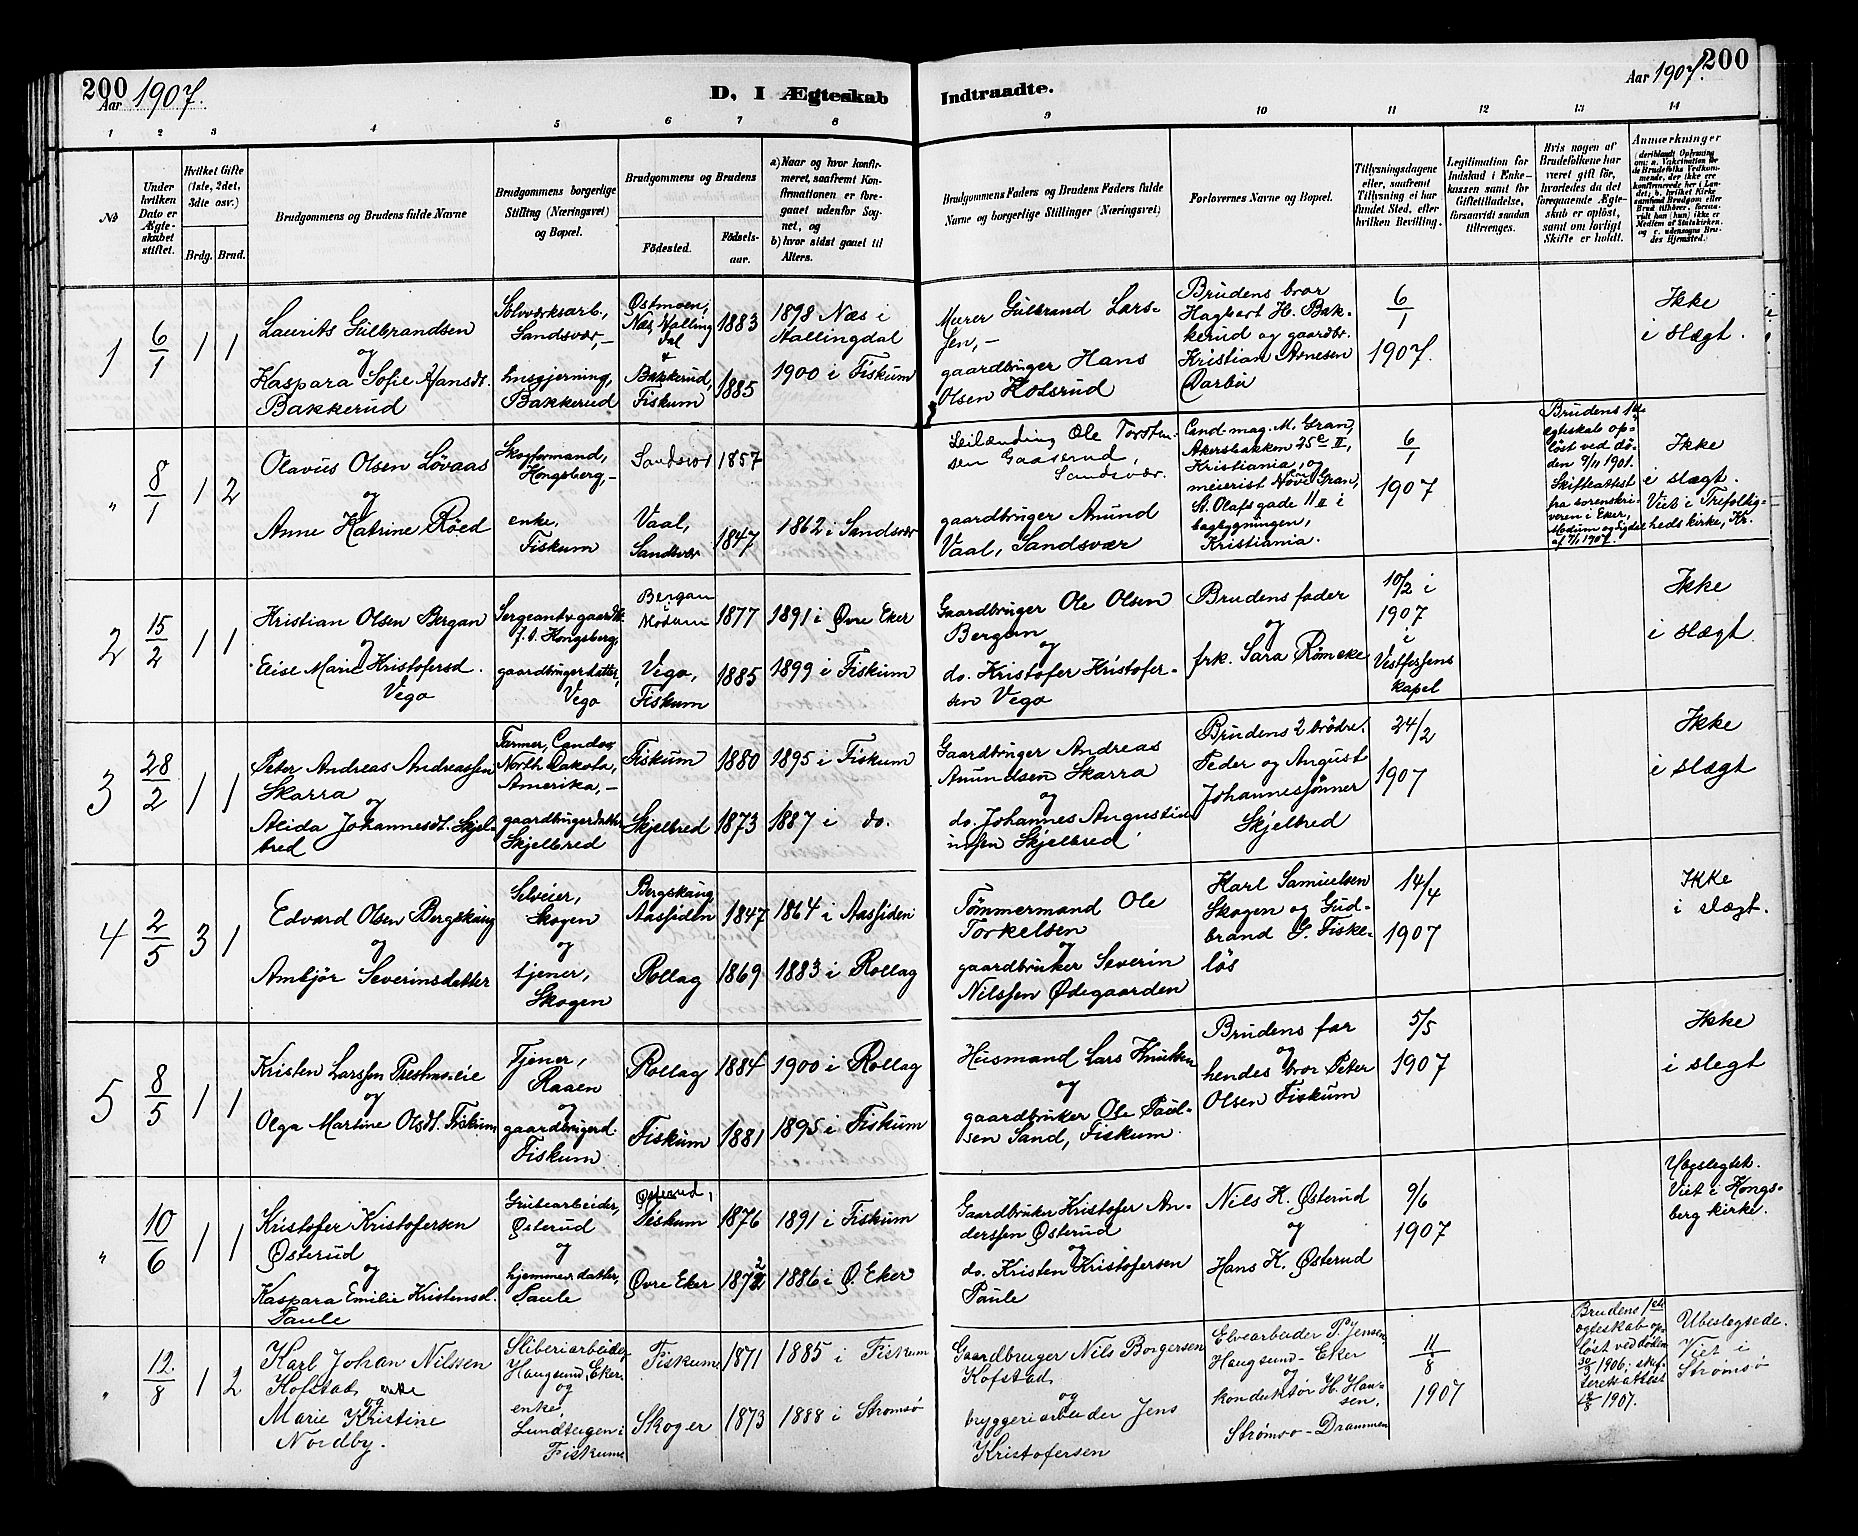 200
Aar 1907.
D, I Ægteskab
Indtraadte.
Aar 1907.
200
1 2 3 4 5 6 7 8 9 10 11 12 13 14
№
Under hvilken Dato er Ægteskabet stiftet.
Hvilket Gifte (1ste, 2det, 3die osv.)
Brdg. Brud.
Brudgommens og Brudens fulde Navne
Brudgommens borgerlige Stilling (Næringsvei) og Bopæl.
Brudgommens og Brudens
Fødested.
Fødselsaar.
a) Naar og hvor konfirmeret, saafremt Konfirmationen er foregaaet udenfor Sognet, og
b) hvor sidst gaaet til Alters.
Brudgommens Faders og Brudens Faders fulde Navne og borgerlige Stillinger (Næringsvei)
Forlovernes Navne og Bopæl.
Tillysningsdagene eller, saafremt Tillysning ei har fundet Sted, efter hvilken Bevilling.
Legitimation for Indskud i Enkekassen samt for Giftetilladelse, forsaavidt saadan tiltrænges.
Hvis nogen af Brudefolkene har været gift før, hvorledes da det foregaaende Ægteskab er opløst, samt om lovligt Skifte er holdt.
Anmerkninger
(deriblandt Oplysning om: a. Vakcination for de Brudefolks Vedkommende, der ikke ere konfirmerede her i Landet; b. hvilket Kirkesamfund Brudgom eller Brud tilhører, forsaavidt han (hun) ikke er Medlem af Statskirken, og c. udensogns Brudes Hjemsted.)
1
6/1
1 1
Laurits Gulbrandsen
og
Kaspara Sofie Hansdt.
Bakkerud
Sølvværksarb.,
Sandsvær, –
husgjerning,
Bakkerud
Østmoen,
Næs, Halling
dal
Bakkerud,
Fiskum
1883
1885
1898 Næs i
Hallingdal
1900 i Fiskum
Murer Gulbrand Lars-
sen, –
gaardbruger Hans
Olsen Holsrud
Brudens bror
Hagbart H. Bak-
kerud og gaardbr.
Kristian Arnesen
Darbu
6/1
1907.
Ikke
i slægt.
"
8/1
1 2
Olavus Olsen Løvaas
og
Anne Katrine Røed
Skogformand,
Kongsberg, –
enke,
Fiskum
Sandsvær
Vaal,
Sandsvær
1857
1847
1862 i Sandsvær
Leilænding Ole Torsten-
sen Gaaserud,
Sandsvær.
gaardbruger Anund
Vaal, Sandsvær
Cand. mag. M. Gran,
Akersbakken 25c II,
Kristiania, og
meierist Hove Gran,
St. Olafs gade 11 II i
bagbygningen,
Kristiania.
6/1
1907
Brudens 1ste
ægteskab op-
løst ved dø-
den 9/11 1901.
Skifteattest
fra sorenskri-
veren i Eker,
Modum og Sigdal
af 7/1 1907.
Ikke
i slægt.
Viet i Trefoldig-
hedskirke, Kr.
2
15/2
1 1
Kristian Olsen Bergan
og
Elise Marie Kristofersd.
Vego
Sergeant v gaardbr.
f. t. Kongsberg,
gaardbrugerdatter,
Vego
Bergan
Modum
Vego,
Fiskum
1877
1885
1891 i Øvre Eker
1899 i Fiskum
Gaardbruger Ole Olsen
Bergan
og
do. Kristofer Kristofer-
sen Vego
Brudens fader
og
frk. Sara Rømcke
10/2 i
1907
i
Vestfossens
kapel
Ikke
i slægt.
3
28/2
1 1
Peter Andreas Andreassen
Skarra
og
Alida Johannesdt. Skjel-
bred
Farmer, Cando,
North Dakota,
Amerika, –
gaardbrugerdatter
Skjelbred
Fiskum
Skjelbred
1880
1873
1895 i Fiskum
1887 i do.
Gaardbruger Andreas
Anundsen Skarra
og
do. Johannes Augustin
ussen Skjelbred
Brudens 2 brødre.
Peder og August
Johannessønner
Skjelbred
24/2
1907
Ikke
i slægt
4
2/5
3 1
Edvard Olsen Bergskaug
og
Ambjør Severinsdatter
Selveier,
Skogen
og
tjener,
Skogen
Bergskaug
Aassiden
Rollag
1847
1869
1864 i Aassiden
1883 i Rollag
Tømmermand Ole
Torkelsen
og
gaardbruker Severin
Nilssen Ødegaarden
Karl Samuelsen
Skogen og Gud-
brand G. Fiske-
løs
14/4
1907
Ikke
i slægt.
5
8/5
1 1
Kristen Larssen Prestmoeie
og
Olga Martine Olsdt. Fiskum
Tjener,
Raaen
og
gaardbrugerd.
Fiskum
Rollag
Fiskum
1884
1881
1900 i Rollag
1895 i Fiskum
Husmand Lars Knutsen
og
gaardbruker Ole Paul-
sen Sand, Fiskum
Brudens far
og
hendes bror Peter
Olsen Fiskum
5/5
1907
Ikke
i slegt
"
10/6
1 1
Kristofer Kristofersen
Østerud
og
Kaspara Emilie Kristensd.
Paule
Grubearbeider,
Østerud
og
hjemmev. datter,
Paule
Østerud,
Fiskum
Øvre Eker
1876
1872
1891 i Fiskum
1886 i Ø. Eker
Gaardbruker Kristofer An-
derssen Østerud
og
do. Kristen Kristofersen
Paule
Nils K. Østerud
og
Hans K. Østerud
9/6
1907
Ubeslegtet.
Viet i Kongs-
berg kirke.
"
12/8
1 2
Karl Johan Nilssen
Kofstad
og enke
Marie Kristine
Nordby.
Sliberiarbeider
Haugsund, Eker
og
enke
Lundteigen i
Fiskum
Fiskum
Skoger
1871
1873
1885 i Fiskum
1888 i Strømsø
Gaardbruger Nils Borgersen
Kofstad
og
bryggeriarbeider Jens
Kristofersen
Elvearbeider P. Jensen
Haugsund – Eker
og
konduktør H. Han-
sen.
Strømsø – Drammen
11/8
1907
Brudens 1ste
egteskab op-
løst ved døden
1906.
1907.
Ubeslegtede.
Viet i
Strømsø